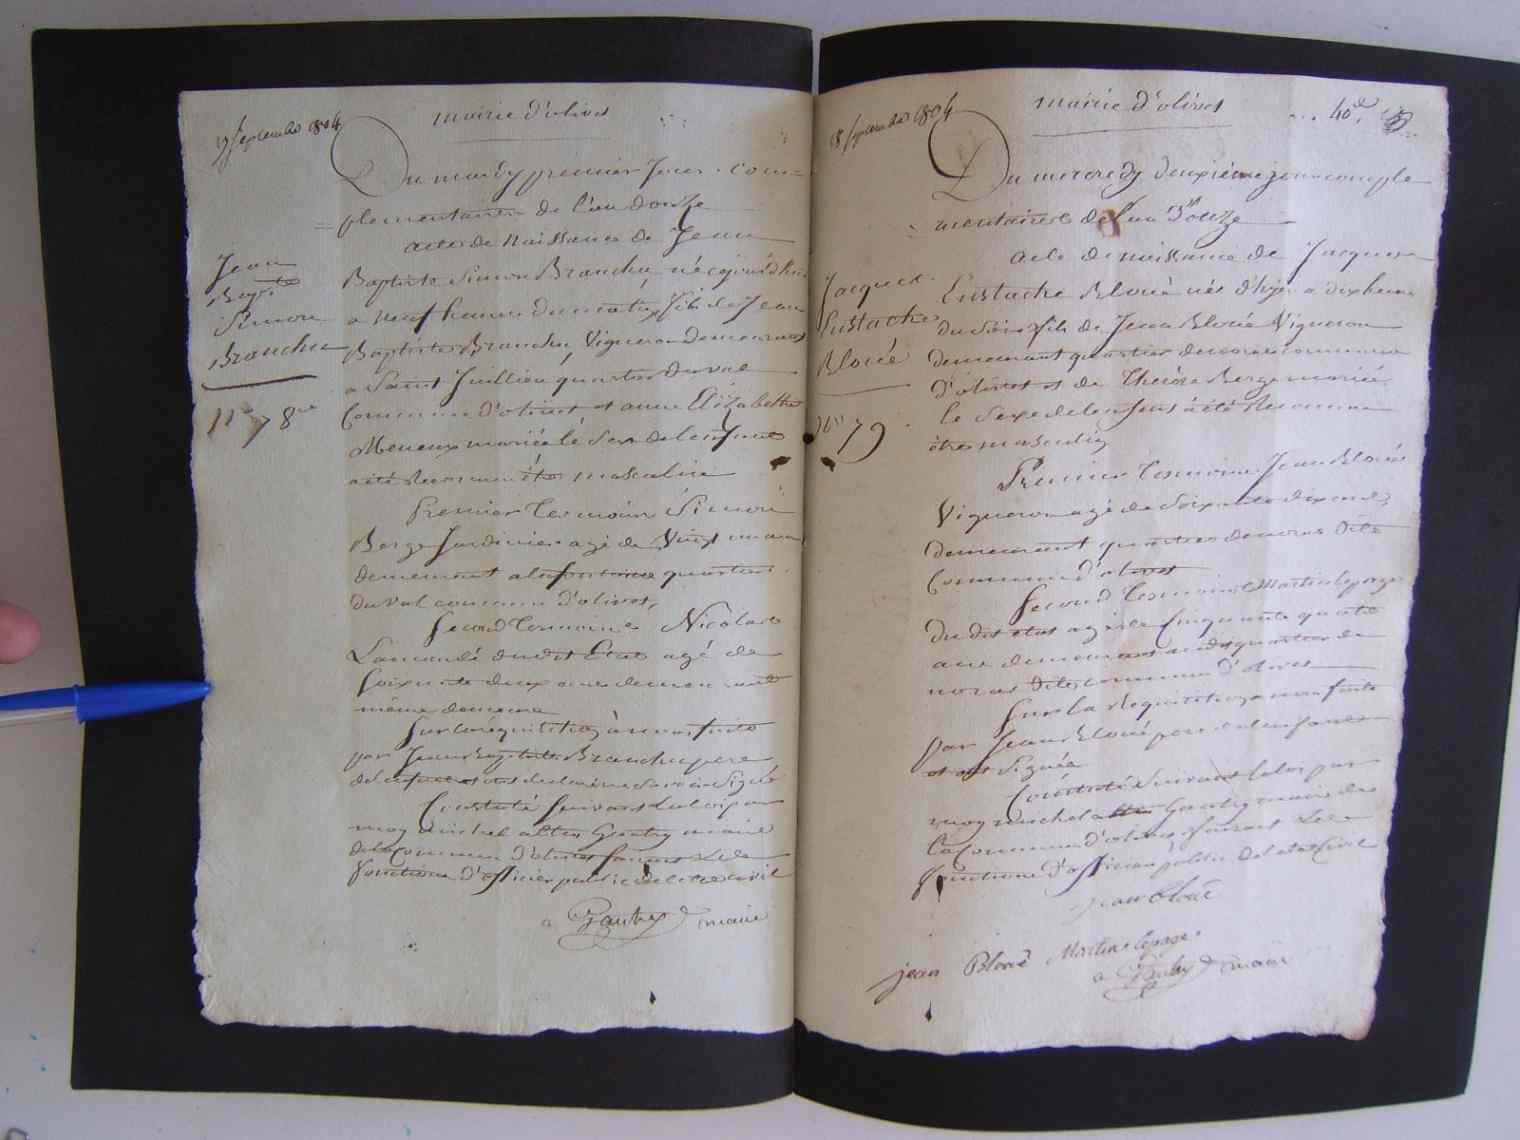 mairie d'olivet
Du mardy premier Jour com=
= plementaire de l'an douze
acte de Naissance de Jean
Baptiste Simon Branchu, né cejourd'hui
a neuf heures du matin, fils de Jean
Baptiste Branchu, Vigneron demeurant
a Saint Juillien quartier du val
Commune d'olivet et anne Elizabethe
mariée le Sexe de l'enfant
a été Reconnu être masculine
Premier temoin Simon
Berge Jardinier agé de Vingt un ans
demeurant a la fontaine quartier
du val commune d'olivet,
Second temoine Nicolas
Lamandé dudit Etat agé de
soixante deux ans demeurant
même demeure
Sur la réquisition à nous faite
par Jean Baptiste Branchu pere
de l'enfant et ont declaré ne savoir Signé
Constaté Suivant la loi par
moy michel alten Gautry maire
de la Commune d'olivet faisant Les
fonctions d'officier public de l'etat civil
Gautry maire
Jean
Bapte
Simon
Branchu
78
Septembre 1804
mairie d'olivet
40
Du mercredy deuxième jour comple
mentaire de l'an Douze
acte de naissance de Jacques
Eustache Bloué né d'hyer a dix heures
du Soir fils de Jean Bloué Vigneron
demeurant quartier de noras commune
d'olivet et de Therèse Berge mariée
le Sexe de l'enfant à été Reconnu
être masculin
Premier temoin Jean Bloué
Vigneron agé de Soixante dix ans
demeurant quartier de noras dite
Commune d'olivet
Second temoin Martin lepage
du dit etat agé de Cinquante quatre
ans demeurant audit quartier de
noras dite commune d'olivet
Sur la Réquisition a nous faite
par Jean Bloué pere de l'enfant
et ont Signée
Constaté Suivant la loi par
moy michel alten Gautry maire de
la Commune d'olivet faisant Les
fonctions d'officier public de l'etat Civil
jean bloué
jean Bloué Martin lepage
Gautry maire
18 Septembre 1804
Jacques
Eustache
Bloué
79